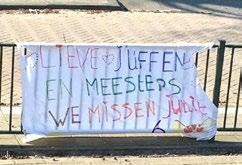 LIEVE JUFFEN
EN MEESTERS
WE MISSEN JULLIE